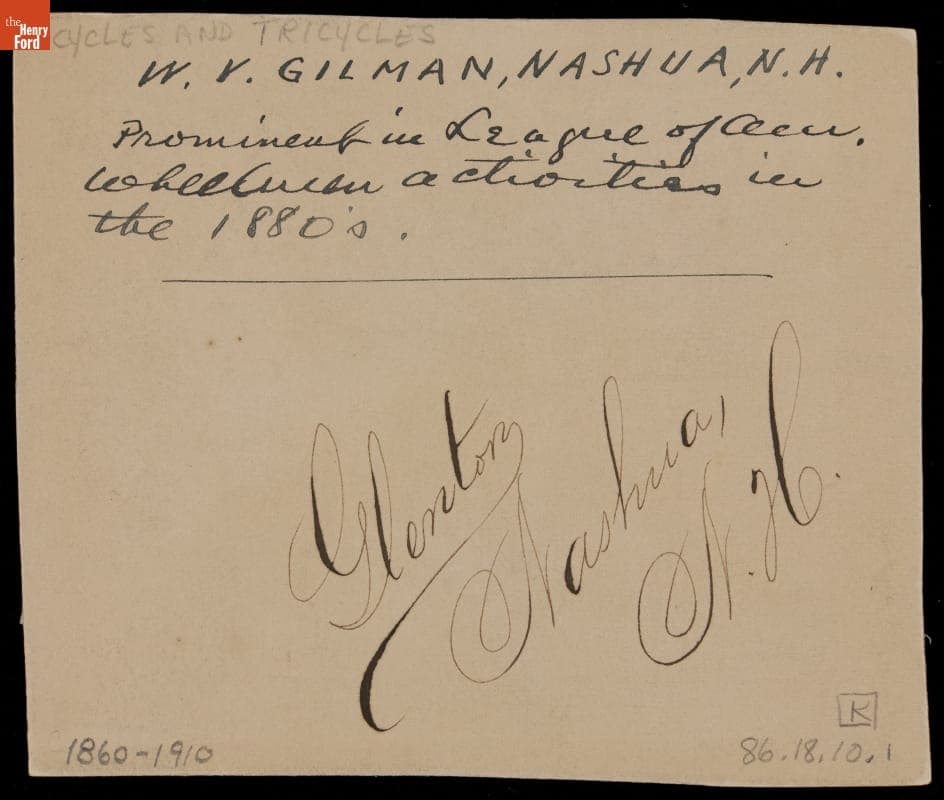 the
Henry
Ford
CYCLES AND TRICYCLES
W. V. GILMAN, NASHUA, N.H.
Prominent in League of Am.
Wheelmen activities in
the 1880's.
Glenton
Nashua,
N.H.
K
1860-1910
86.18.10.1